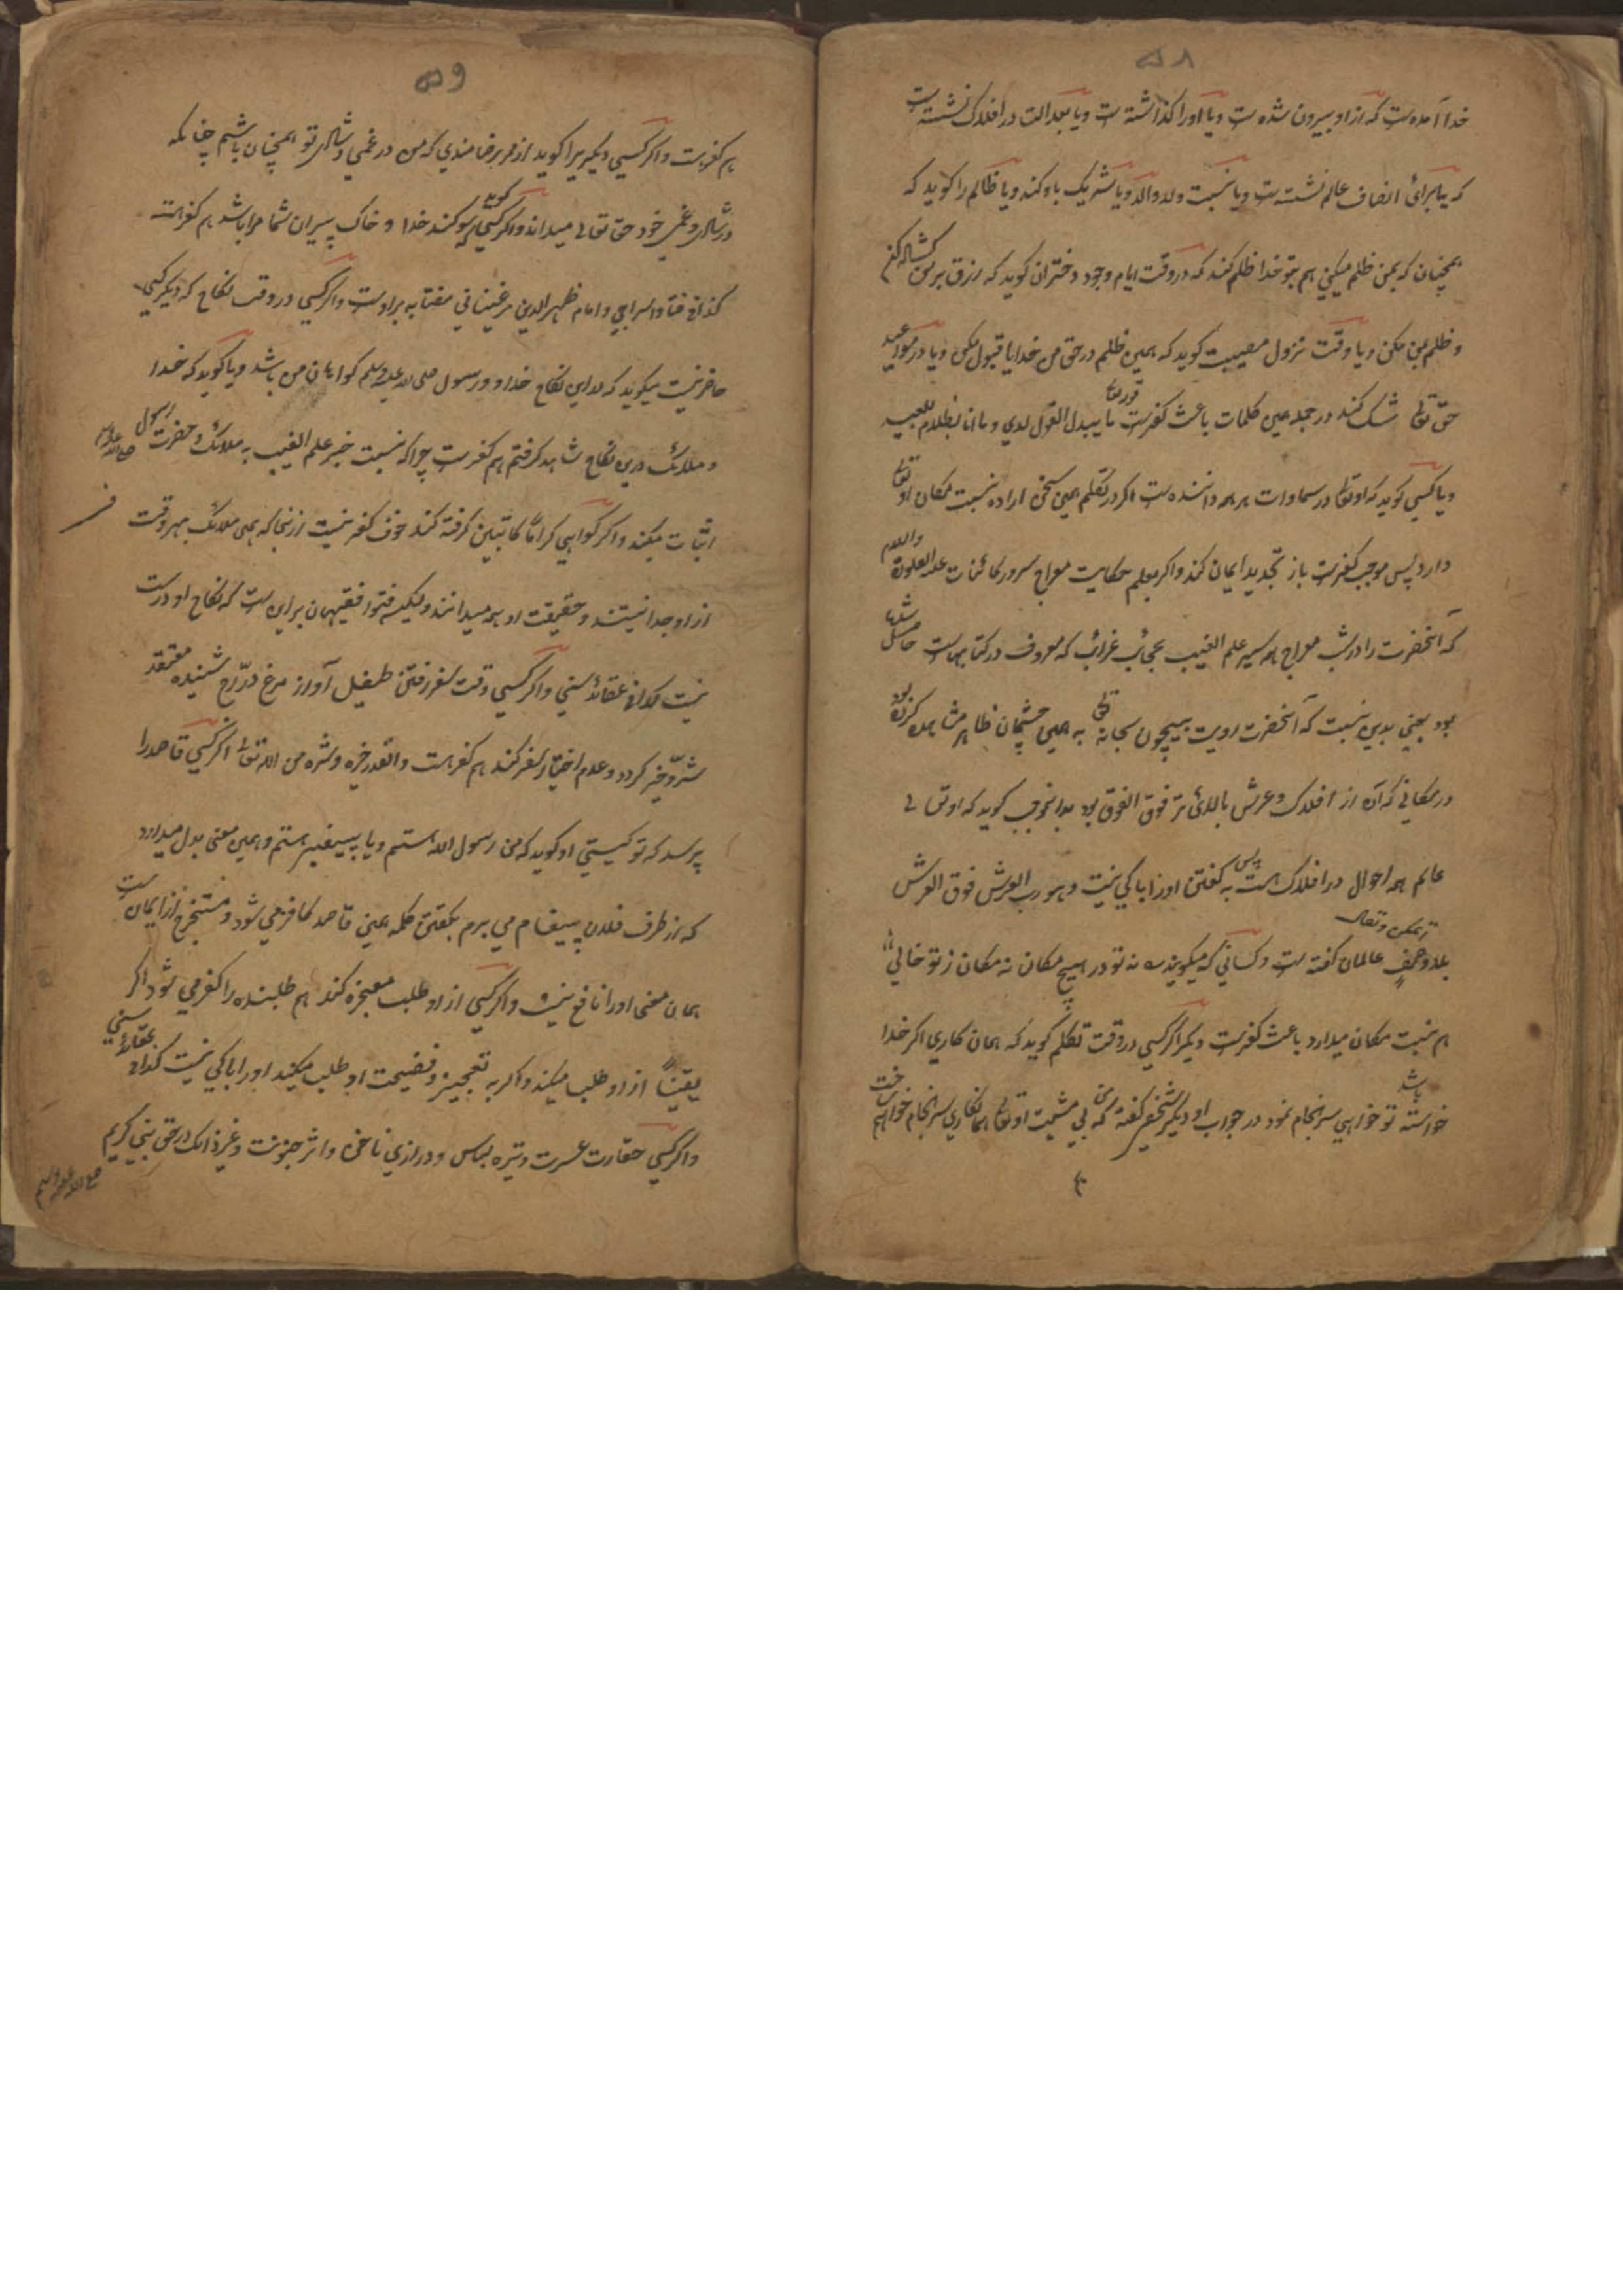 ۵۸
خدا آمده ست که از او بیرون شده ست ویا اورا کذاشته ست ویا بعدالت در افلاک نشسته ست
که یا برائ انصاف عالم نشسته ست ویا نسبت ولد والد ویا شریک باو کند ویا ظالم را کوید که
همچنان که بمن ظلم میکنی هم بتو خدا ظلم کند که در وقت ایام وجود دختران کوید که رزق بر من کشاله کن
و ظلم بمن مکن ویا وقت نزول مصیبت کوید که همین ظلم در حق من خدایا قبول مکن ویا در مواعید
حق تعالی شک کند در جمله همین کلمات باعث کفرست قوله تعالی ما یبدل القول لدي وما انا بظلام للعبید
ویا کسي کوید که اوتعالی در سماوات بر همه داننده ست اکر در تکلم همین سخن اراده نسبت مکان او تعالی
دارد پس موجب کفرست باز تجدید ایمان کند واکر بعلم حکایت معراج سرور کائنات علیه الصلوة والسلام
که آنحضرت را در شب معراج همه سیر علم الغیب عجائب غرائب که معروف در کتابهاست حاصل شده
بود یعني بدین نسبت که آنحضرت رویت بیچون سبحانه تعالی به همین چشمان ظاهر مشاهده کرده بود
در مکاني که آن از افلاک وعرش بالائ تر فوق الفوق بود بدانموجب کوید که اوتعالی
عالم همه احوال در افلاک هست پس به کفتن اورا باکي نیست وهو رب العرش فوق العرش
بلا وصف از تمکن وتعال عالمان کفته ست وکساني که میکویند نه تو در هیچ مکان نه مکان ز تو خالي
هم نسبت مکان میدارد باعث کفرست دیکر اکر کسي در وقت تکلم کوید که همان کاري اکر خدا
خواسته باشد تو خواهي سرانجام نمود در جواب او دیکر شخص کفته که بي مشیت اوتعالی همانکاري سرانجام خواهم ساخت
۵۹
هم کفرست واکر کسي دیکریرا کوید از فر برضامندي که من در غمي وشادي تو همچنان باشم چنانکه
در شادي وغمي خود حق تعالی میداند واکر کسي کوید که سوکند خدا و خاک پیران شما مرا باشد هم کفرست
کذا في فتاوا سراجي وامام ظهیر الدین مرغیناني مفتا به براوست واکر کسي در وقت نکاح که دیکر کسي
حاضر نیست میکوید که بر این نکاح خدا و رسول صلی الله علیه وسلم کواهان من باشد ویا کوید که خدا
و ملائک درین نکاح شاهد کرفتم هم کفرست چراکه نسبت خبر علم الغیب به ملائک وحضرت رسول صلی الله علیه وسلم
اثبات میکند واکر کواهي کراماً کاتبین کرفته کند خوف کفر نیست ازینجا که همین ملائک بهر وقت
از او جدا نیستند وحقیقت او همه میدانند ولیکن فتوا فقیهان براین ست که نکاح او درست
نیست کذا في عقائد سني واکر کسي وقت سفر رفتن طفیل آواز مرغ درّاج شنیده معتقد
شرّ وخیر کردد وعدم اختیار سفر کند هم کفرست والقدر خیره وشره من الله تعالی اکر کسي قاصد را
پرسد که تو کیستي او کوید که من رسول الله هستم ویا پیغمبر هستم وهمین معنی بدل میدارد
که از طرف فلان پیغام مي برم بکفتن کلمه همین قاصد کافر مي شود ومستخرج از ایمان ست
همان معنی اورا نافع نیست واکر کسي از او طلب معجزه کند هم طلبنده را کفر مي شود اکر
یقیناً از او طلب میکند واکر به تعجیز وفضیحت او طلب میکند اورا باکي نیست کذا في عقائد سني
واکر کسي حقارت عسرت وتیره لباس ودرازي ناخن واثر جنونت وغیر ذالک در حق نبي کریم
صلی الله علیه وسلم